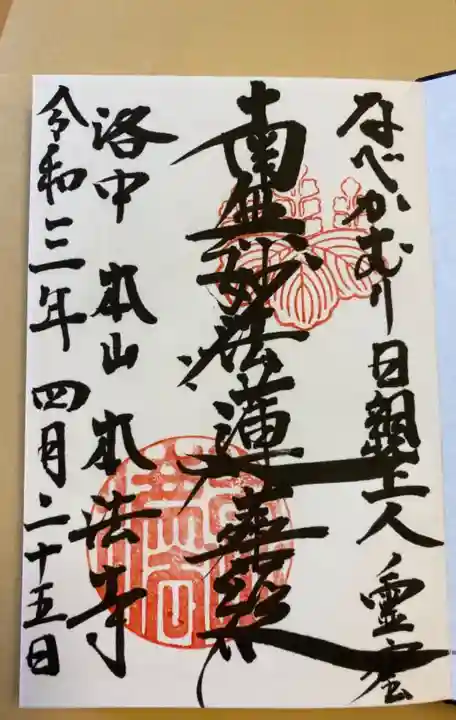 なべかむり日親上人霊宝
南無妙法蓮華経
洛中 本山 本法寺
令和三年四月二十五日